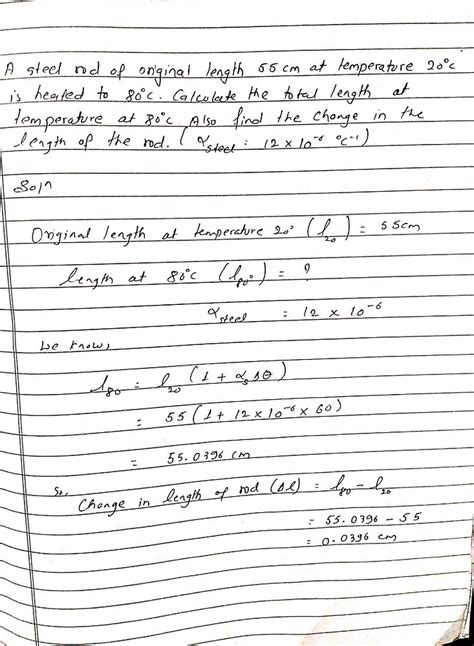 A steel rod of original length 55 cm at temperature 20°c
is heated to 80°c. Calculate the total length at
temperature at 80°c. Also find the change in the
length of the rod. (α steel : 12 × 10⁻⁶ °c⁻¹)
Soln
Original length at temperature 20° (l₂₀) = 55cm
length at 80°c (l₈₀°) = ?
α steel = 12 × 10⁻⁶
We know,
l₈₀ = l₂₀ (1 + αₛ Δθ)
= 55 (1 + 12 × 10⁻⁶ × 60)
= 55.0396 cm
So,
Change in length of rod (Δl) = l₈₀ - l₂₀
= 55.0396 - 55
= 0.0396 cm